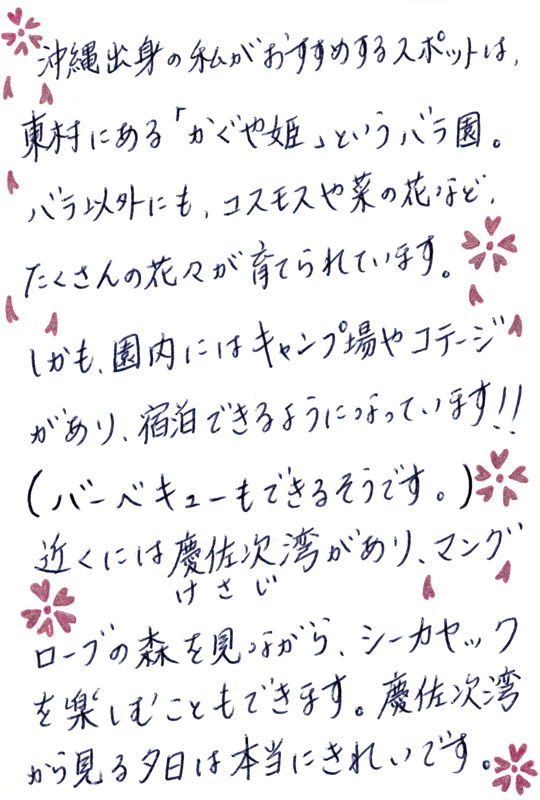 沖縄出身の私がおすすめするスポットは、
東村にある「かぐや姫」というバラ園。
バラ以外にも、コスモスや菜の花など、
たくさんの花々が育てられています。
しかも、園内にはキャンプ場やコテージ
があり、宿泊できるようになっています!!
(バーベキューもできるそうです。)
近くには慶佐次湾があり、マング
けさじ
ローブの森を見ながら、シーカヤック
を楽しむこともできます。慶佐次湾
から見る夕日は本当にきれいです。